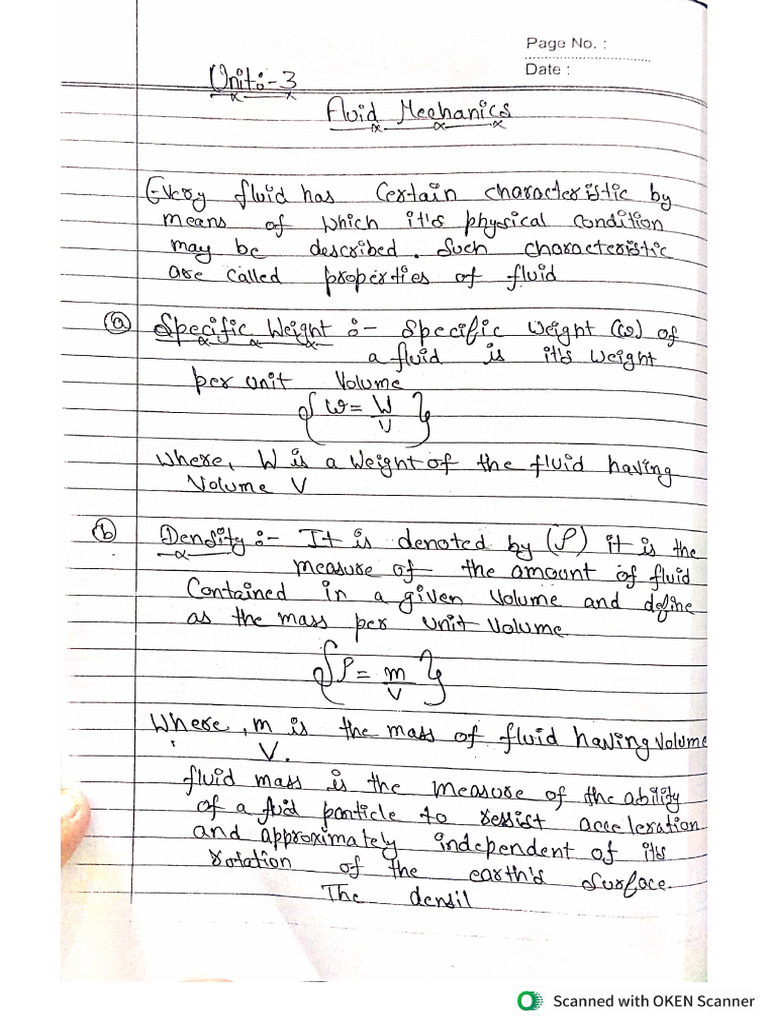 Page No. :
Date :
Unit:-3
Fluid Mechanics
Every fluid has certain characteristic by
means of which it's physical condition
may be described. Such characteristic
are called properties of fluid
(a) Specific Weight :- Specific weight (ω) of
a fluid is it's weight
per unit Volume
{ω = W/V}
Where, W is a weight of the fluid having
Volume V
(b) Density :- It is denoted by (ρ) it is the
measure of the amount of fluid
Contained in a given volume and define
as the mass per unit volume
{ρ = m/V}
Where, m is the mass of fluid having volume
V.
fluid mass is the measure of the ability
of a fluid particle to ressist acceleration
and approximately independent of its
rotation of the earth's surface.
The densil
Scanned with OKEN Scanner